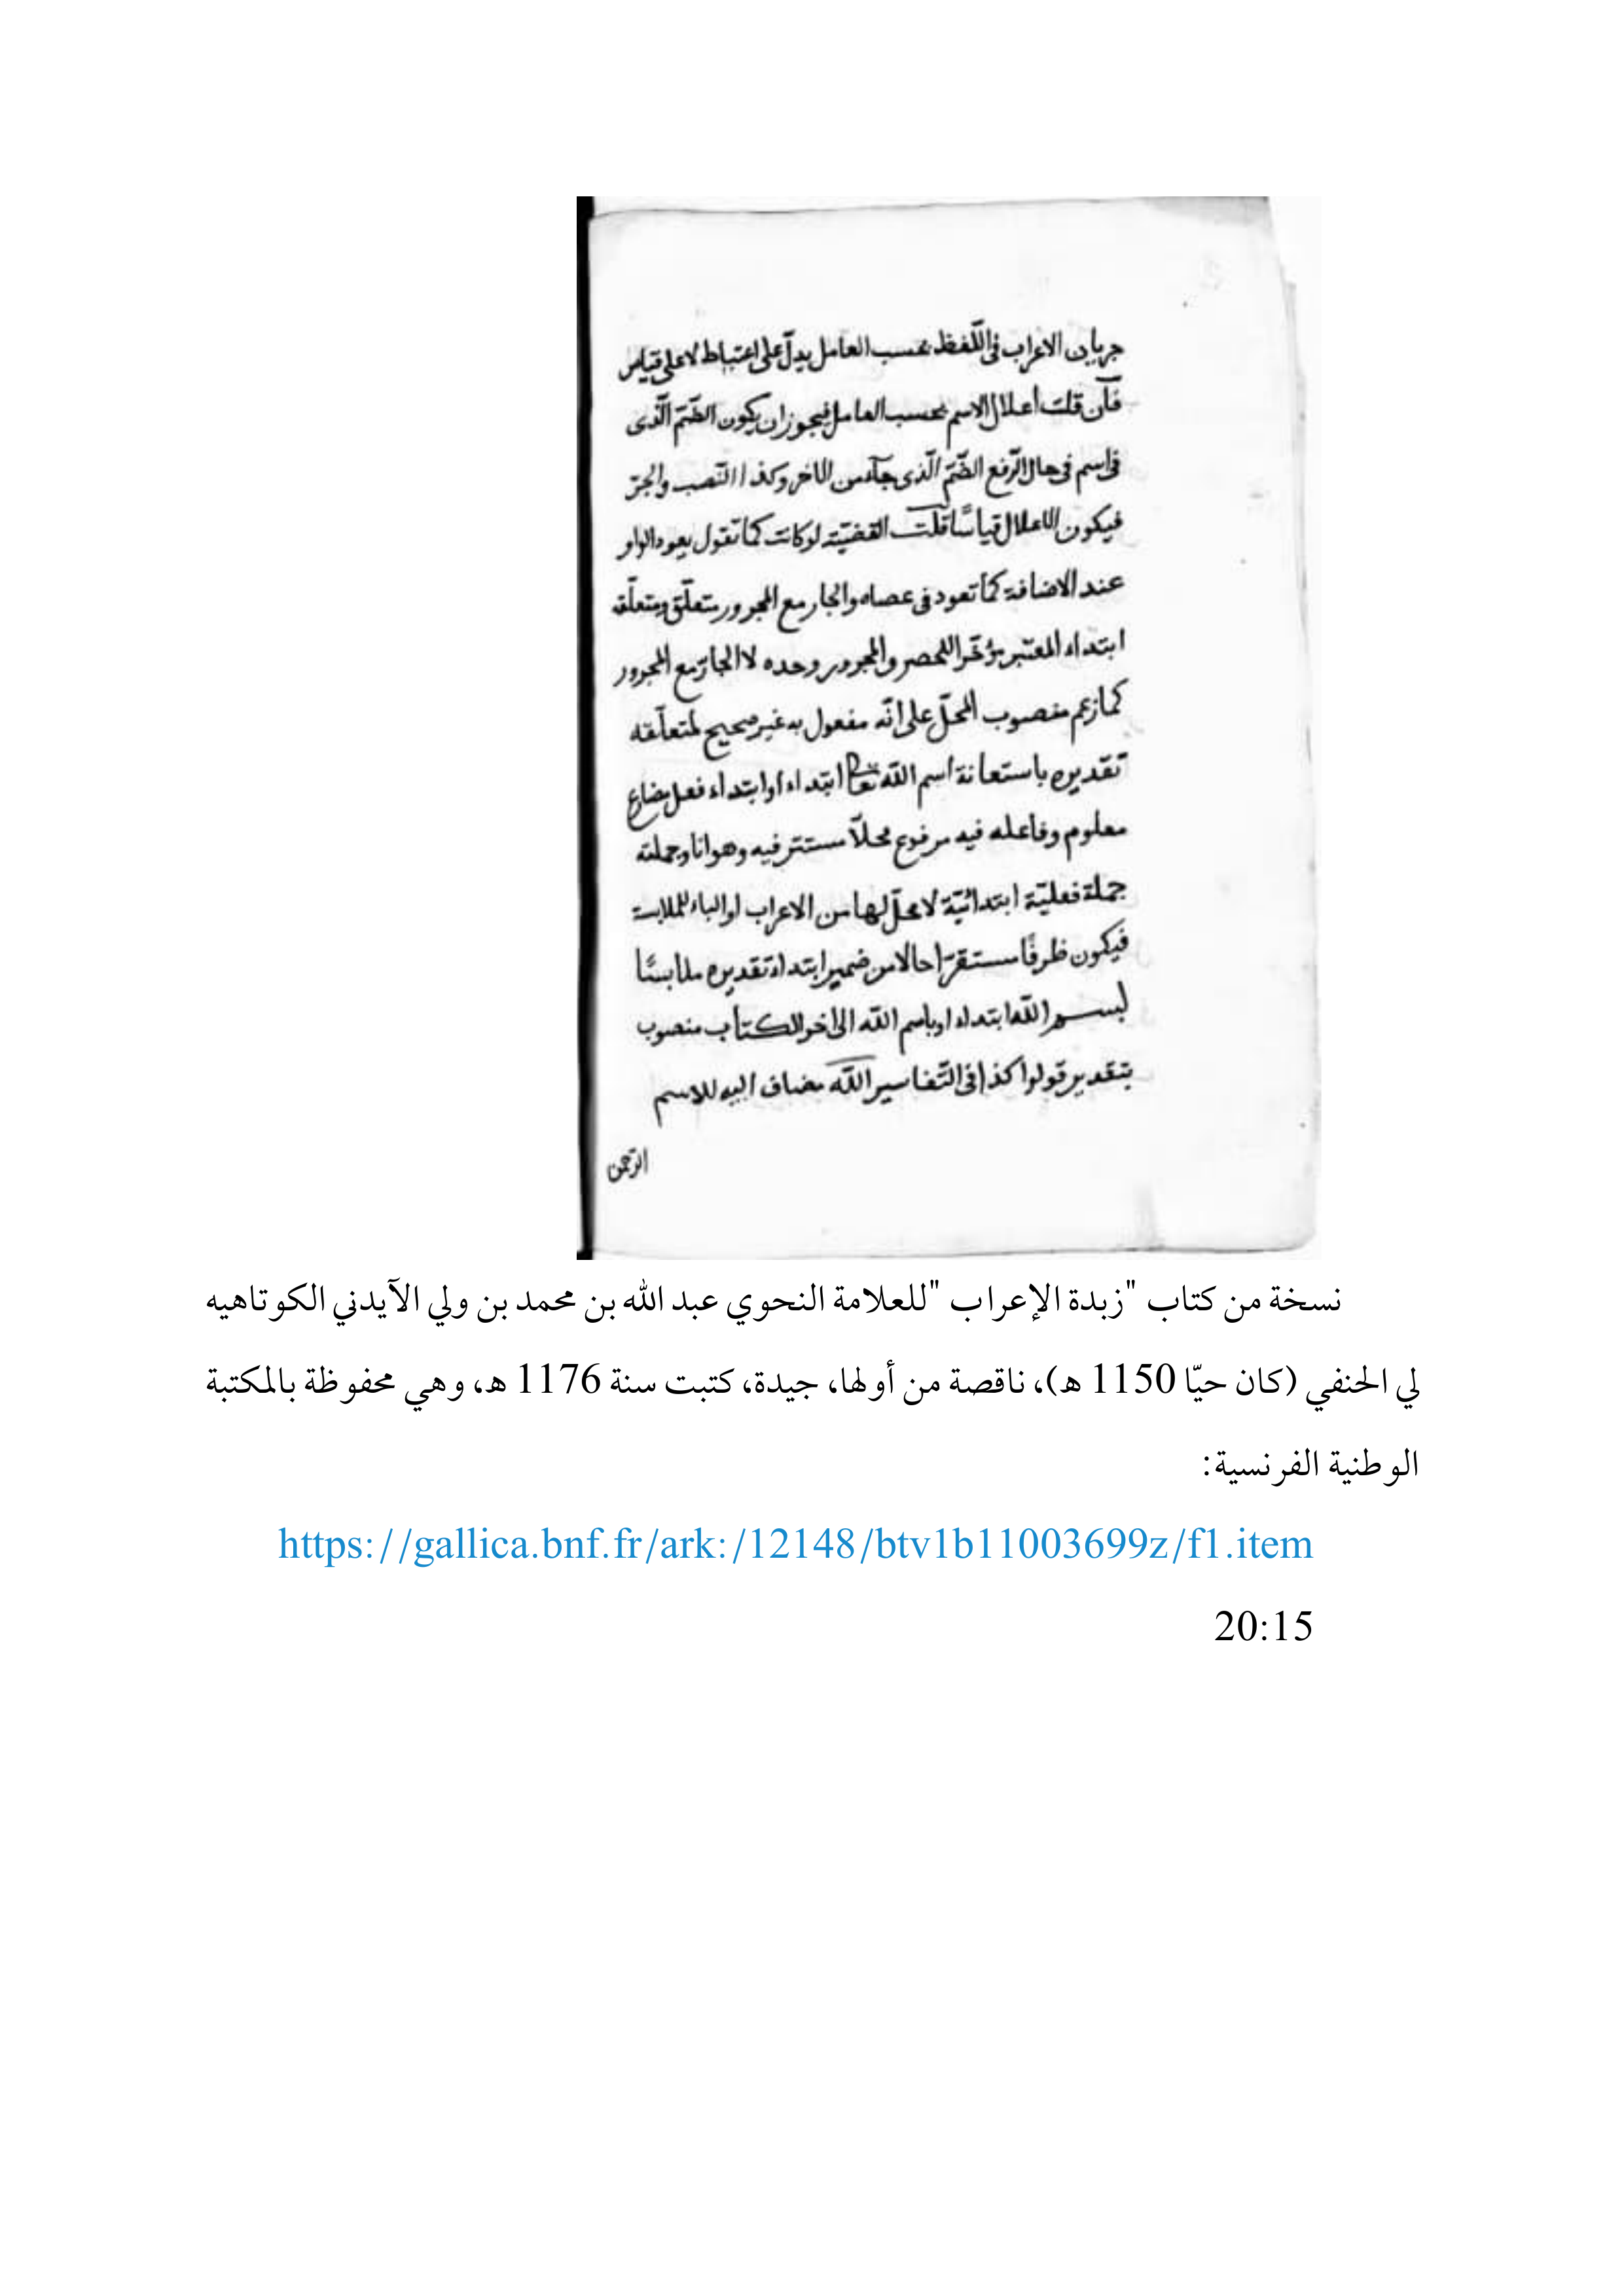 جريان الاعراب فى اللّفظ بحسب العامل يدلّ على اعتباط لا على قياس
فآن قلت اعلال الاسم بحسب العامل فيجوز ان يكون الضّمّ الّذى
فى اسم فى حال الرّفع الضّمّ الّذى جآء من الاخر وكذا النّصب والجرّ
فيكون الاعلال قياسًا قلت القضيّة لو كانت كما تقول يعود الواو
عند الاضافة كما تعود فى عصاه والجار مع المجرور متعلّق ومتعلّقه
ابتداء المعتبر مؤخّر اللحصر والمجرور وحده لا الجارّ مع المجرور
كما زعم منصوب المحلّ على انّه مفعول به غير صحيح لمتعلّقه
تقديره باستعانة اسم الله تعا ابتداء او ابتداء فعل مضارع
معلوم وفاعله فيه مرفوع محلاّ مستتر فيه وهو انا وجملته
جملة فعليّة ابتدائيّة لا محلّ لها من الاعراب او الباء للملابسة
فيكون ظرفًا مستقرّا حالا من ضمير ابتداء تقديره ملابسًا
لبسم الله ابتداء او باسم الله الى اخر الكتاب منصوب
بتقدير قولوا كذا فى التّفاسير اللّه مضاف اليه للاسم
الرّحمن
نسخة من كتاب "زبدة الإعراب "للعلامة النحوي عبد الله بن محمد بن ولي الآيدني الكوتاهيه
لي الحنفي (كان حيّا 1150 هـ)، ناقصة من أولها، جيدة، كتبت سنة 1176 هـ، وهي محفوظة بالمكتبة
الوطنية الفرنسية:
https://gallica.bnf.fr/ark:/12148/btv1b11003699z/f1.item
20:15